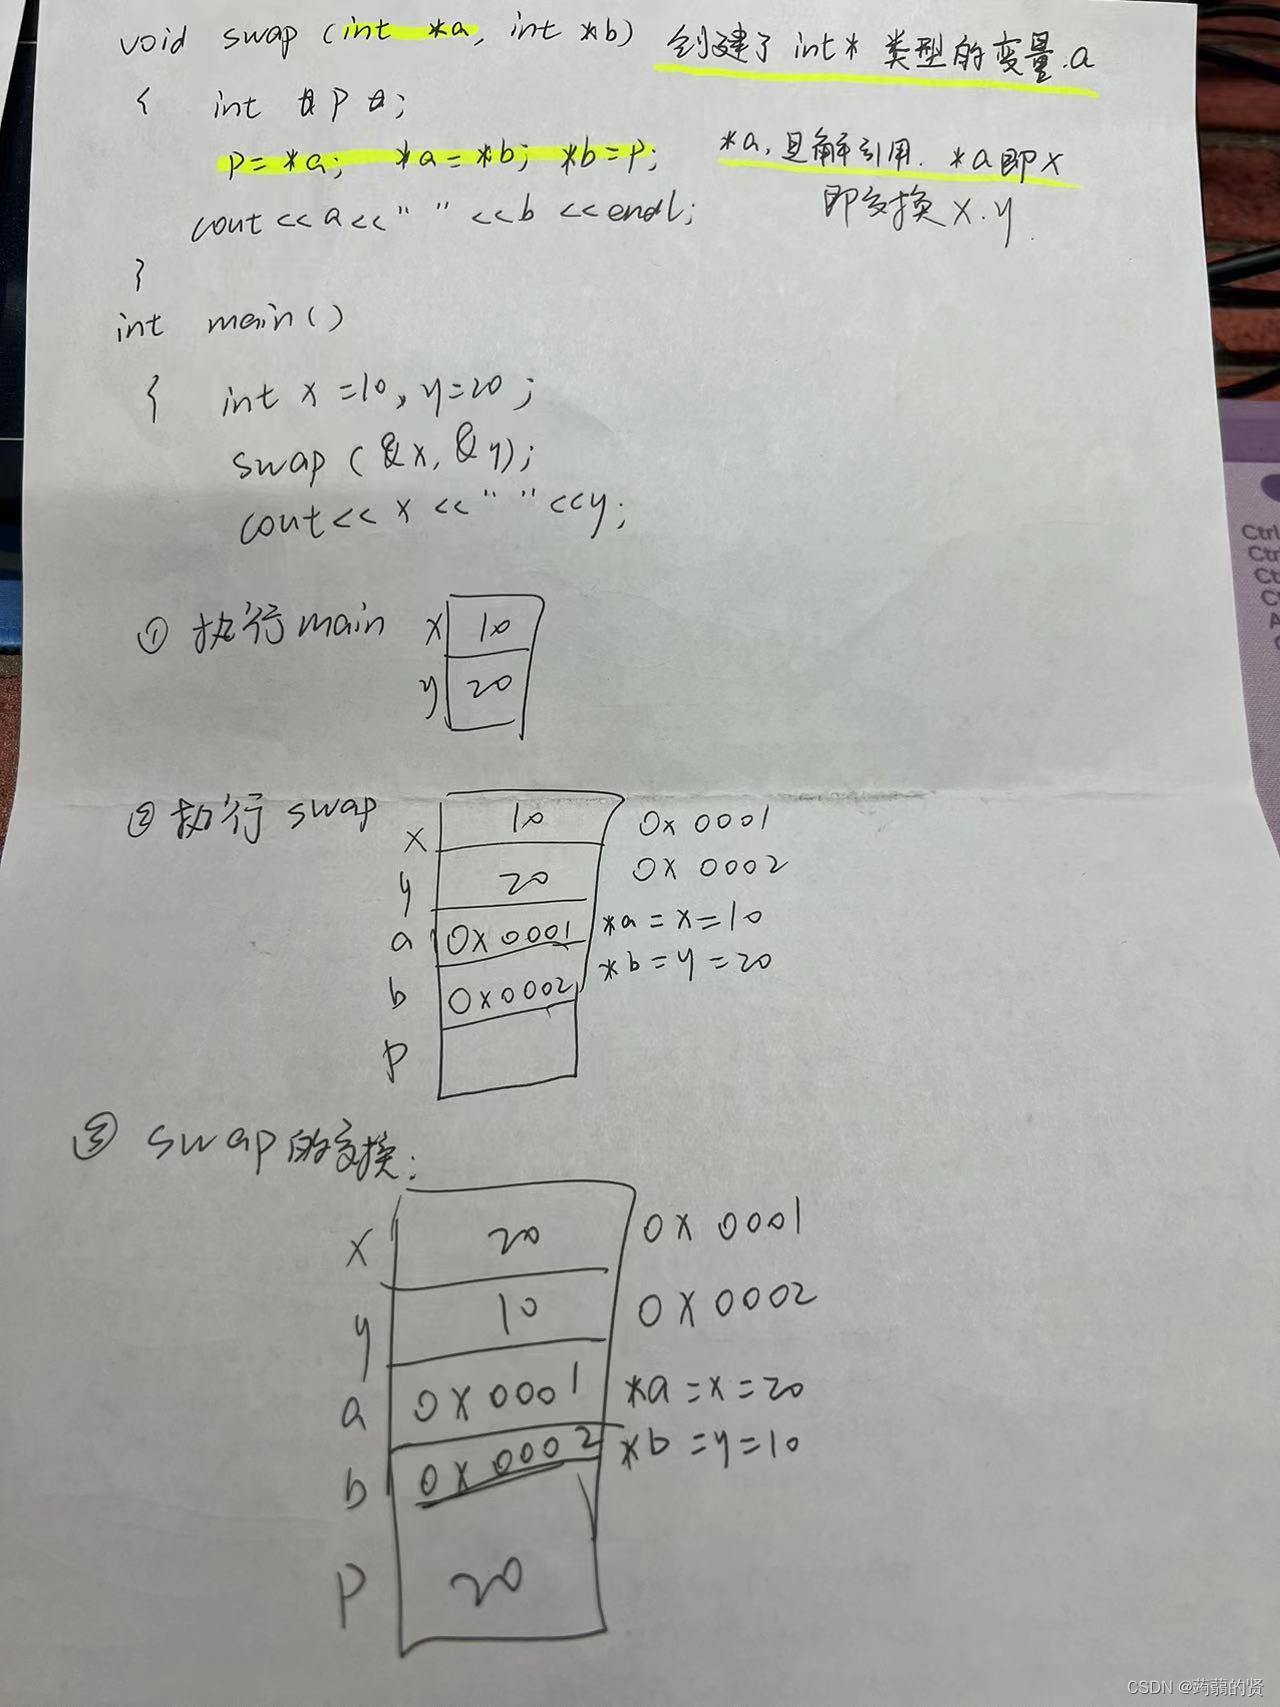 void swap (int *a, int *b) 创建了 int* 类型的变量.a
{ int p ;
p=*a; *a=*b; *b=p; *a,且解引用. *a即x
cout<<a<<" "<<b<<endl; 即交换 x.y.
}
int main()
{ int x=10,y=20;
swap (&x,&y);
cout<<x<<" "<<y;
① 执行main x 10
y 20
② 执行 swap
x 10 0x0001
y 20 0x0002
a 0x0001 *a=x=10
b 0x0002 *b=y=20
p
③ swap的交换:
x 20 0x0001
y 10 0x0002
a 0x0001 *a=x=20
b 0x0002 *b=y=10
p 20
Ctrl
Ct
CSDN @蒟蒻的贤